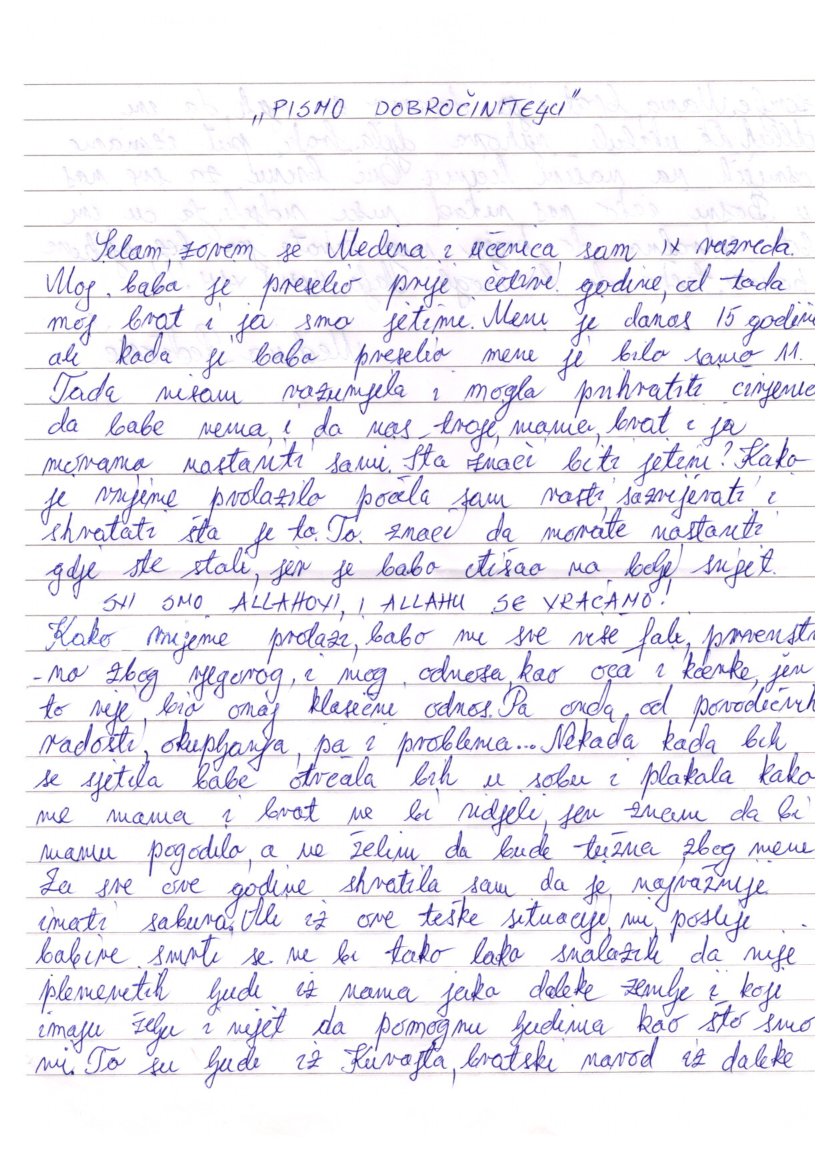 „PISMO DOBROČINITELJU"
Selam, zovem se Medina i učenica sam IX razreda.
Moj babo je preselio prije četiri godine, od tada
moj brat i ja smo jetimi. Meni je danas 15 godina
ali kada je babo preselio mene je bilo samo 11.
Tada nisam razumjela i mogla prihvatiti činjenic
da babe nema, i da nas troje, mama, brat i ja
moramo nastaviti sami. Šta znači biti jetim? Kako
je vrijeme prolazilo počela sam rasti, sazrijevati i
shvatati šta je to. To znači da morate nastaviti
gdje ste stali, jer je babo otišao na bolji svijet.
SVI SMO ALLAHOVI, I ALLAHU SE VRAĆAMO!
Kako vrijeme prolazi, babo mi sve više fali, prvenstv
-no zbog njegovog, i mog odnosa, kao oca i kćerke, jer
to nije bio onaj klasični odnos. Pa onda, od porodičnih
radosti, okupljanja, pa i problema... Nekada kada bih
se sjetila babe otrčala bih u sobu i plakala kako
me mama i brat ne bi vidjeli, jer znam da bi
mamu pogodilo, a ne želim da bude tužna zbog mene
Za sve ove godine shvatila sam da je najvažnije
imati sabura. Ali iz ove teške situacije, mi, poslije
babine smrti se ne bi tako lako snalazili da nije
plemenitih ljudi iz nama jako daleke zemlje i koji
imaju želju i nijet da pomognu ljudima kao što smo
mi. To su ljudi iz Kuvajta, bratski narod iz daleke